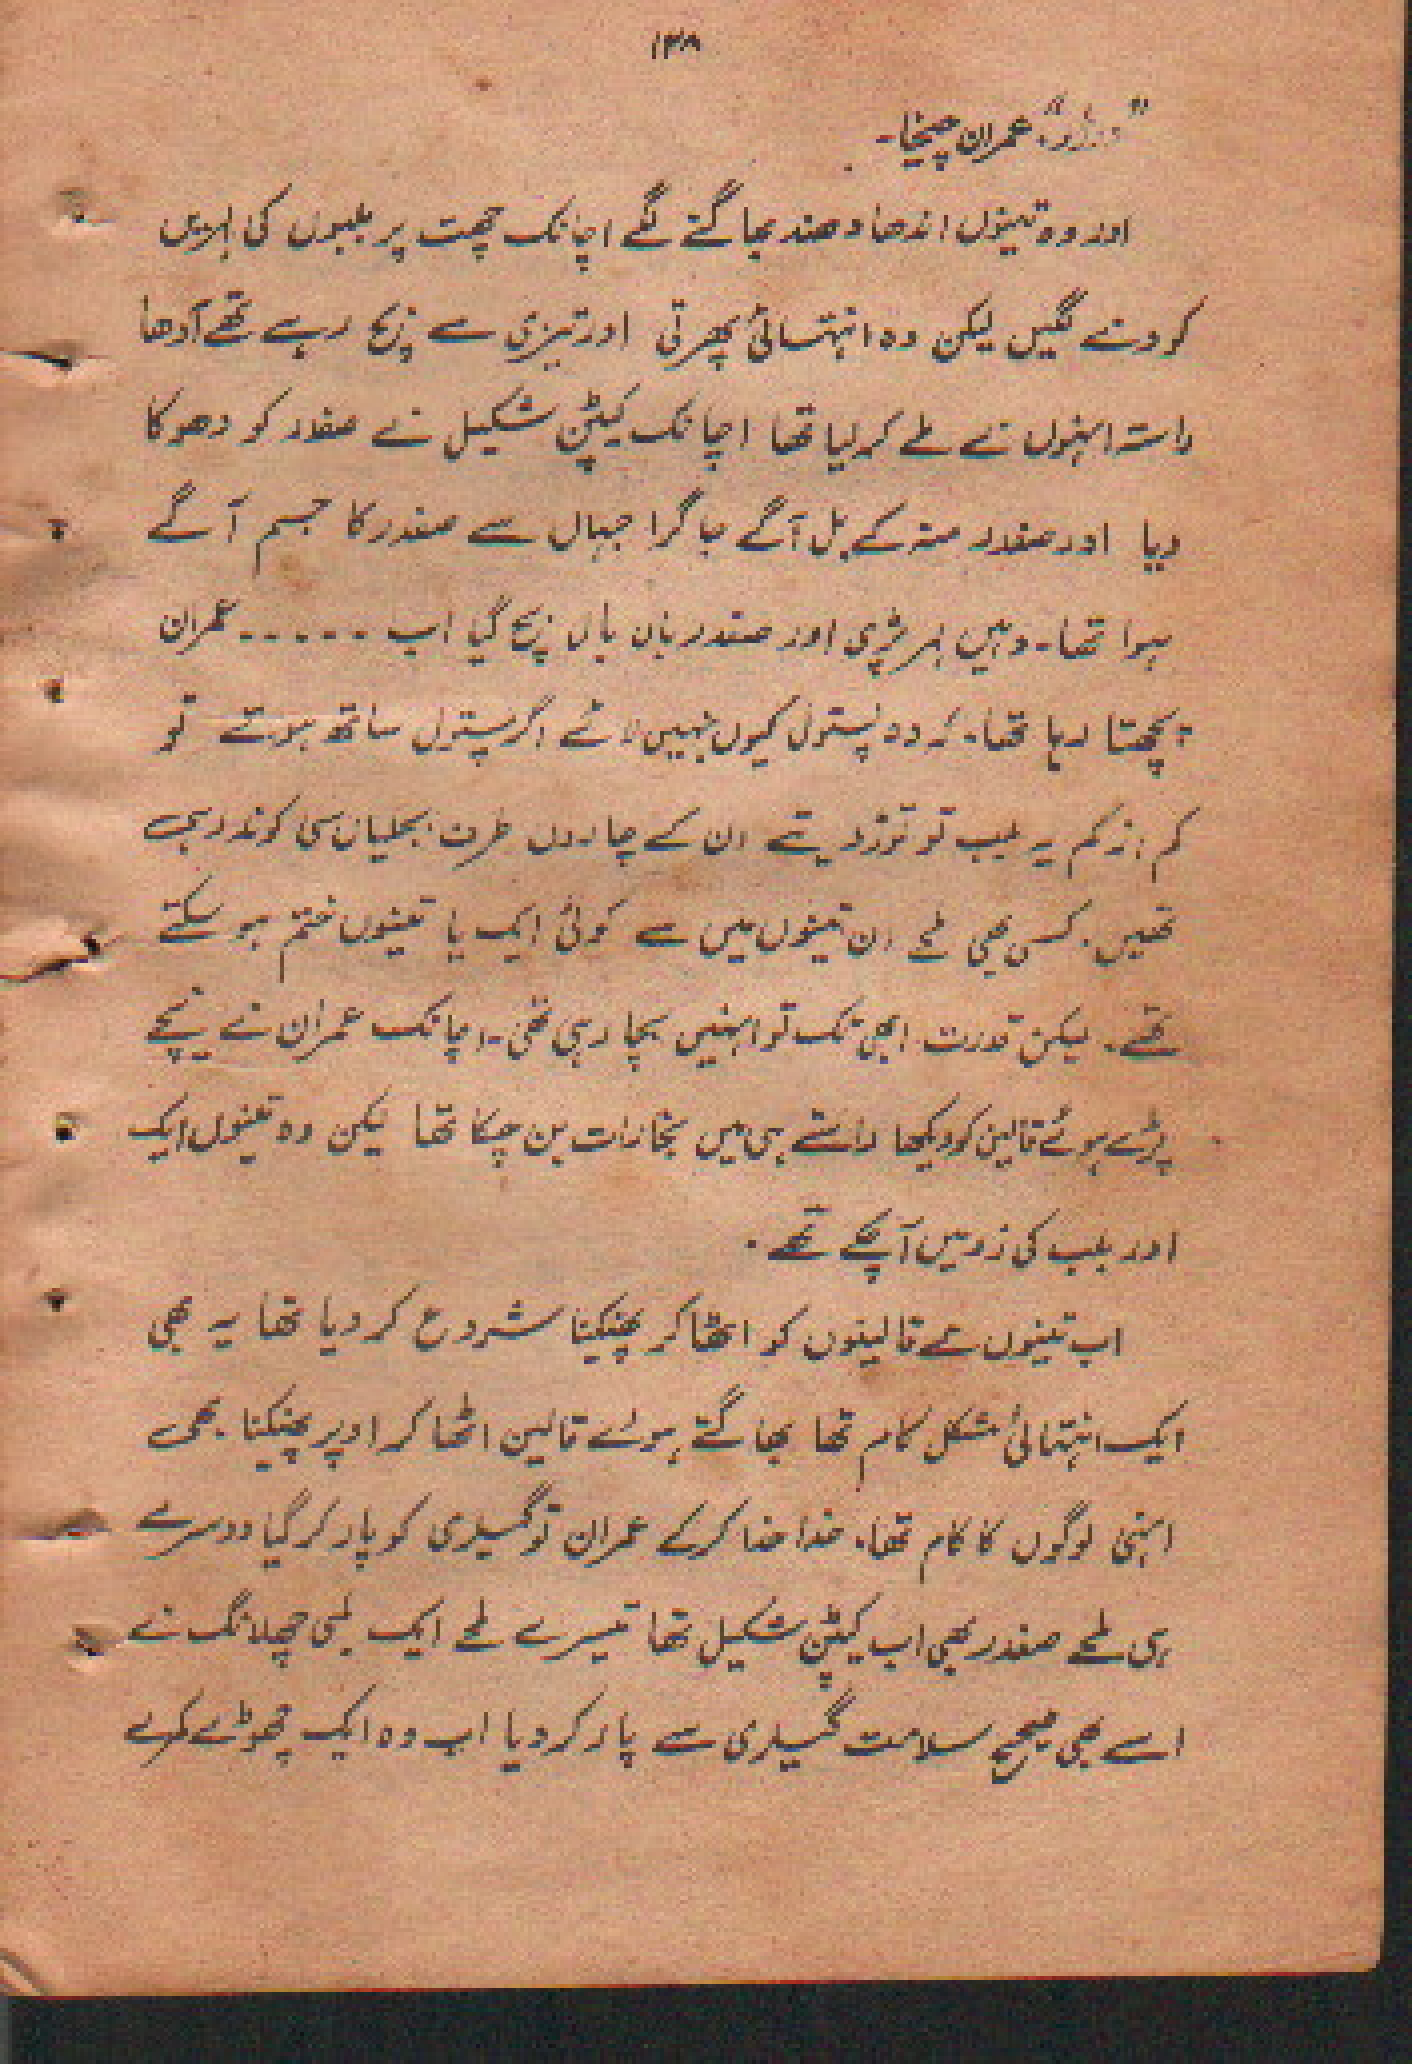 ۱۳۸
"دوڑو" عمران چیخا۔
اور وہ تینوں اندھا دھند بھاگنے لگے اچانک چھت پر بلبوں کی لہریں
کودنے لگیں لیکن وہ انتہائی پھرتی اور تیزی سے بچ رہے تھے آدھا
راستہ انہوں نے طے کر لیا تھا اچانک کیپٹن شکیل نے صفدر کو دھوکا
دیا اور صفدر منہ کے بل آگے جا گرا جہاں سے صفدر کا جسم آگے
ہوا تھا۔ وہیں لہر پڑی اور صفدر بال بال بچ گیا اب ۔۔۔۔۔ عمران
پچھتا رہا تھا۔ کہ وہ پستول کیوں نہیں لائے اگر پستول ساتھ ہوتے تو
کم از کم یہ بلب تو توڑ دیتے ان کے چاروں طرف بجلیاں سی کوند رہی
تھیں۔ کسی بھی لمحے ان تینوں میں سے کوئی ایک یا تینوں ختم ہو سکتے
تھے۔ لیکن قدرت ابھی تک تو انہیں بچا رہی تھی۔ اچانک عمران نے نیچے
پڑے ہوئے قالین کو دیکھا راستے ہی میں بخارات بن چکا تھا لیکن وہ تینوں ایک
اور بلب کی زد میں آ چکے تھے۔
اب تینوں نے قالینوں کو اٹھا کر پھینکنا شروع کر دیا تھا یہ بھی
ایک انتہائی مشکل کام تھا بھاگتے ہوئے قالین اٹھا کر اوپر پھینکنا بھی
انہی لوگوں کا کام تھا۔ خدا خدا کرکے عمران تو گیلری کو پار کر گیا دوسرے
ہی لمحے صفدر بھی اب کیپٹن شکیل تھا تیسرے لمحے ایک لمبی چھلانگ نے
اسے بھی صحیح سلامت گیلری سے پار کر دیا اب وہ ایک چھوٹے کمرے